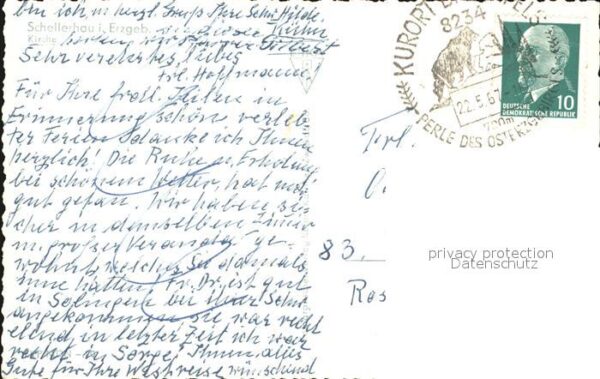 bin ich, m. herzl. Gruß Ihre Schw. Hilde.
Schellerhau i. Erzgeb.
Kirche
Sehr verehrtes, liebes
Frl. Hoffmann!
Für Ihre frdl. Zeilen in
Erinnerung schön verleb-
ter Ferien danke ich Ihnen
herzlich. Die Ruhe u. Erholung
bei schönem Wetter, hat mir
gut gefan. Wir haben si-
cher in demselben Zimmer
m. großer Veranda ge-
wohnt, welches Sie damals
inne hatten. Fr. Br. ist gut
in Solingen bei ihrer Schw.
angekommen, sie war recht
elend, in letzter Zeit ich war
recht in Sorge. Ihnen alles
Gute für Ihre Westreise wünschend
KURORT
8234
22.5.67
PERLE DES OSTERZ
DEUTSCHE
DEMOKRATISCHE REPUBLIK
10
Frl.
83.
Ros
privacy protection
Datenschutz